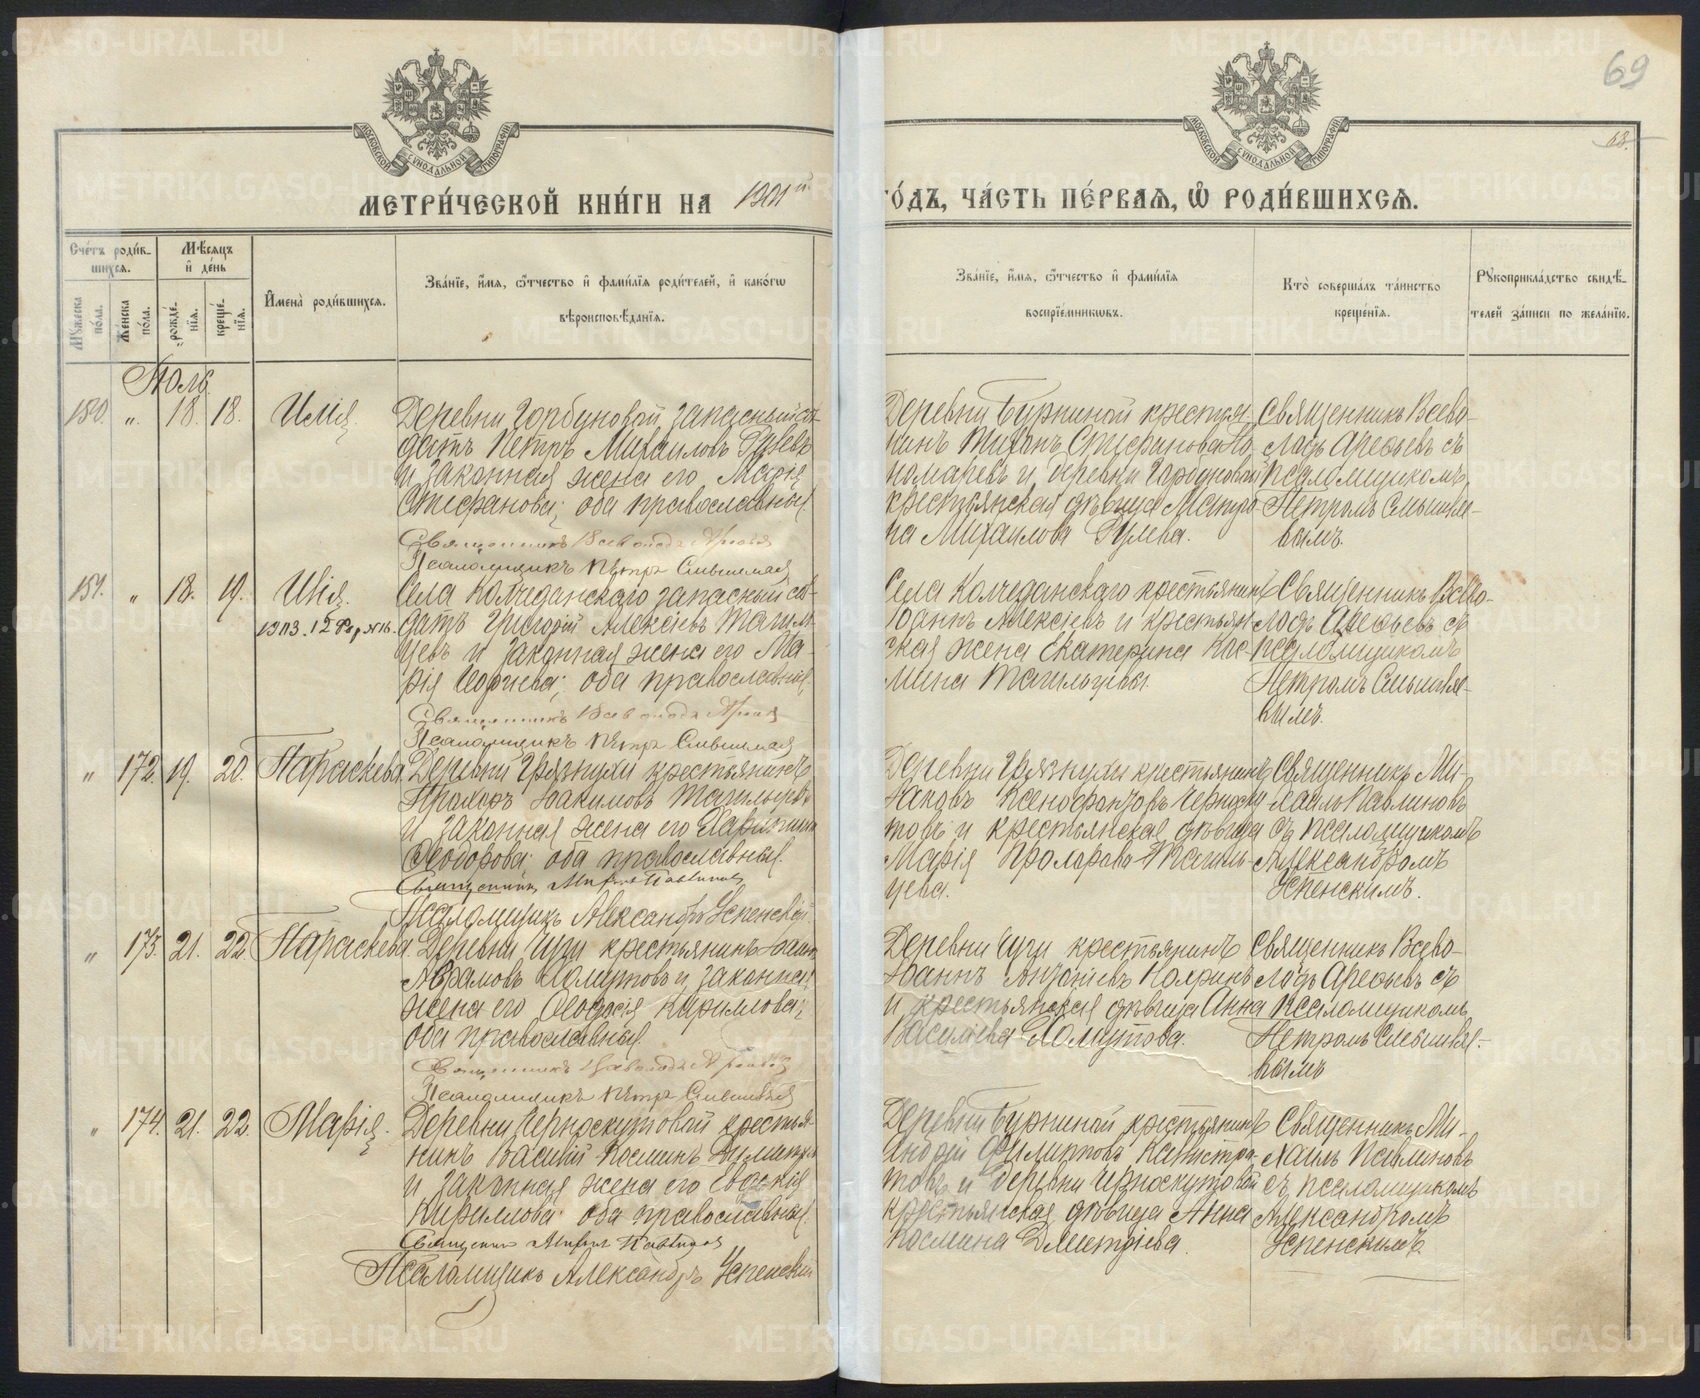 69
68.
МОСКОВСКОЙ СѴНОДАЛЬНОЙ ТИПОГРАФІИ
МОСКОВСКОЙ СѴНОДАЛЬНОЙ ТИПОГРАФІИ
МЕТРИ́ЧЕСКОЙ КНИ́ГИ НА 1901й
ГО́ДЪ, ЧА́СТЬ ПЕ́РВАѦ, Ѽ РОДИ́ВШИХСѦ.
Сче́тъ роди́в-
шихся.
Мѣсяцъ
и де́нь
Мꙋ́жеска по́ла.
Же́нска по́ла.
рожде́-
нїя.
креще́-
нїя.
Имена̀ роди́вшихся.
Зва́нїе, и́мя, ѻ҆́тчество и фами́лїя роди́телей, и како́гѡ
вѣроисповѣ́данїя.
Зва́нїе, и́мя, ѻ҆́тчество и фами́лїя
воспрїе́мникѡвъ.
Кто̀ соверша́лъ та́инство
креще́нїя.
Рꙋкоприкла́дство свидѣ́-
телей за́писи по жела́нїю.
Іюль
150. „ 18. 18. Илія
Деревни Горбуновой запасный сол-
датъ Петръ Михаиловъ Гулевъ
и законная жена его Марія
Стефанова; оба православные
Священникъ Всеволодъ
Псаломщикъ Петръ
Деревни Бурниной крестья-
нинъ Тихонъ Стефановъ По-
номаревъ и деревни Горбуновой
крестьянская дѣвица Матро-
на Михаилова Гулева.
Священникъ Всево-
лодъ Арефьевъ съ
псаломщикомъ
Петромъ
вымъ.
151. „ 18. 19. Илія
Села Колчеданскаго запасный сол-
датъ Григорій Алексіевъ Тагиль-
цевъ и законная жена его Ма-
рія Георгіева; оба православные
Священникъ Всеволодъ
Псаломщикъ Петръ
Села Колчеданскаго крестьянинъ
Іоаннъ Алексіевъ и крестьян-
ская жена Екатерина Кос-
мина Тагильцевы.
Священникъ Всево-
лодъ Арефьевъ съ
псаломщикомъ
Петромъ
вымъ.
„ 172. 19. 20. Параскева
Деревни Грязнухи крестьянинъ
Іоакимовъ Тагильцевъ
и законная жена его
Ѳеодорова; оба православные.
Священникъ Михаилъ Павлиновъ
Псаломщикъ Александръ Успенскій
Деревни Грязнухи крестьянинъ
Іаковъ Ксенофонтовъ Черноску-
товъ и крестьянская дѣвица
Марія Тагиль-
цева.
Священникъ Ми-
хаилъ Павлиновъ
съ псаломщикомъ
Александромъ
Успенскимъ.
„ 173. 21. 22. Параскева
Деревни Чуги крестьянинъ Іоаннъ
Аврамовъ Хомутовъ и законная
жена его Ѳеодосія Кириллова;
оба православные
Священникъ Всеволодъ
Псаломщикъ Петръ
Деревни Чуги крестьянинъ
Іоаннъ Антоніевъ
и крестьянская дѣвица Анна
Василіева Хомутова.
Священникъ Всево-
лодъ Арефьевъ съ
псаломщикомъ
Петромъ
вымъ
„ 174. 21. 22. Марія.
Деревни Черноскутовой крестья-
нинъ Василій Косминъ
и законная жена его Евдокія
Кириллова; оба православные.
Священникъ Михаилъ Павлиновъ
Псаломщикъ Александръ Успенскій
Деревни Бурниной крестьянинъ
Андрей Филипповъ
товъ и деревни Черноскутовой
крестьянская дѣвица Анна
Космина Дмитріева.
Священникъ Ми-
хаилъ Павлиновъ
съ псаломщикомъ
Александромъ
Успенскимъ
METRIKI.GASO-URAL.RU